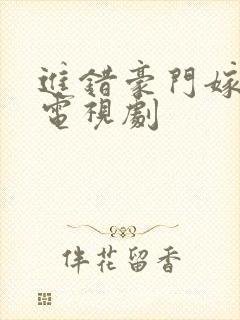 進錯豪門嫁
電視劇
伴花留香